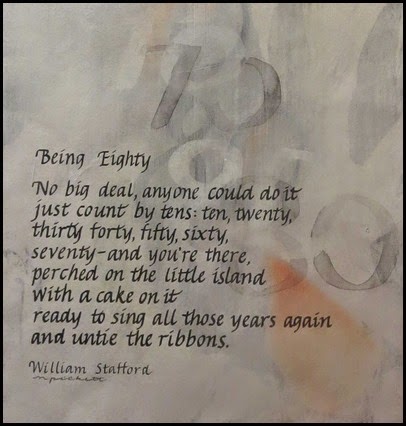 70
Being Eighty
No big deal, anyone could do it
just count by tens: ten, twenty,
thirty forty, fifty, sixty,
seventy-and you're there,
perched on the little island
with a cake on it
ready to sing all those years again
and untie the ribbons.
William Stafford